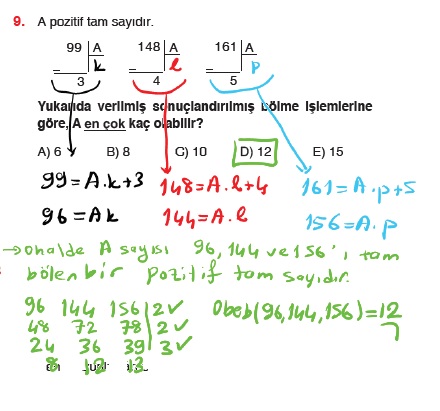 9. A pozitif tam sayıdır.
99 A 148 A 161 A
k l p
3 4 5
Yukarıda verilmiş sonuçlandırılmış bölme işlemlerine
göre, A en çok kaç olabilir?
A) 6 B) 8 C) 10 D) 12 E) 15
99=A.k+3 148=A.l+4 161=A.p+5
96=Ak 144=A.l 156=A.p
→ohalde A sayısı 96,144 ve 156'ı tam
bölen bir pozitif tam sayıdır.
96 144 156 2 ✓ Obeb(96,144,156)=12
48 72 78 2 ✓
24 36 39 3 ✓
8 12 13